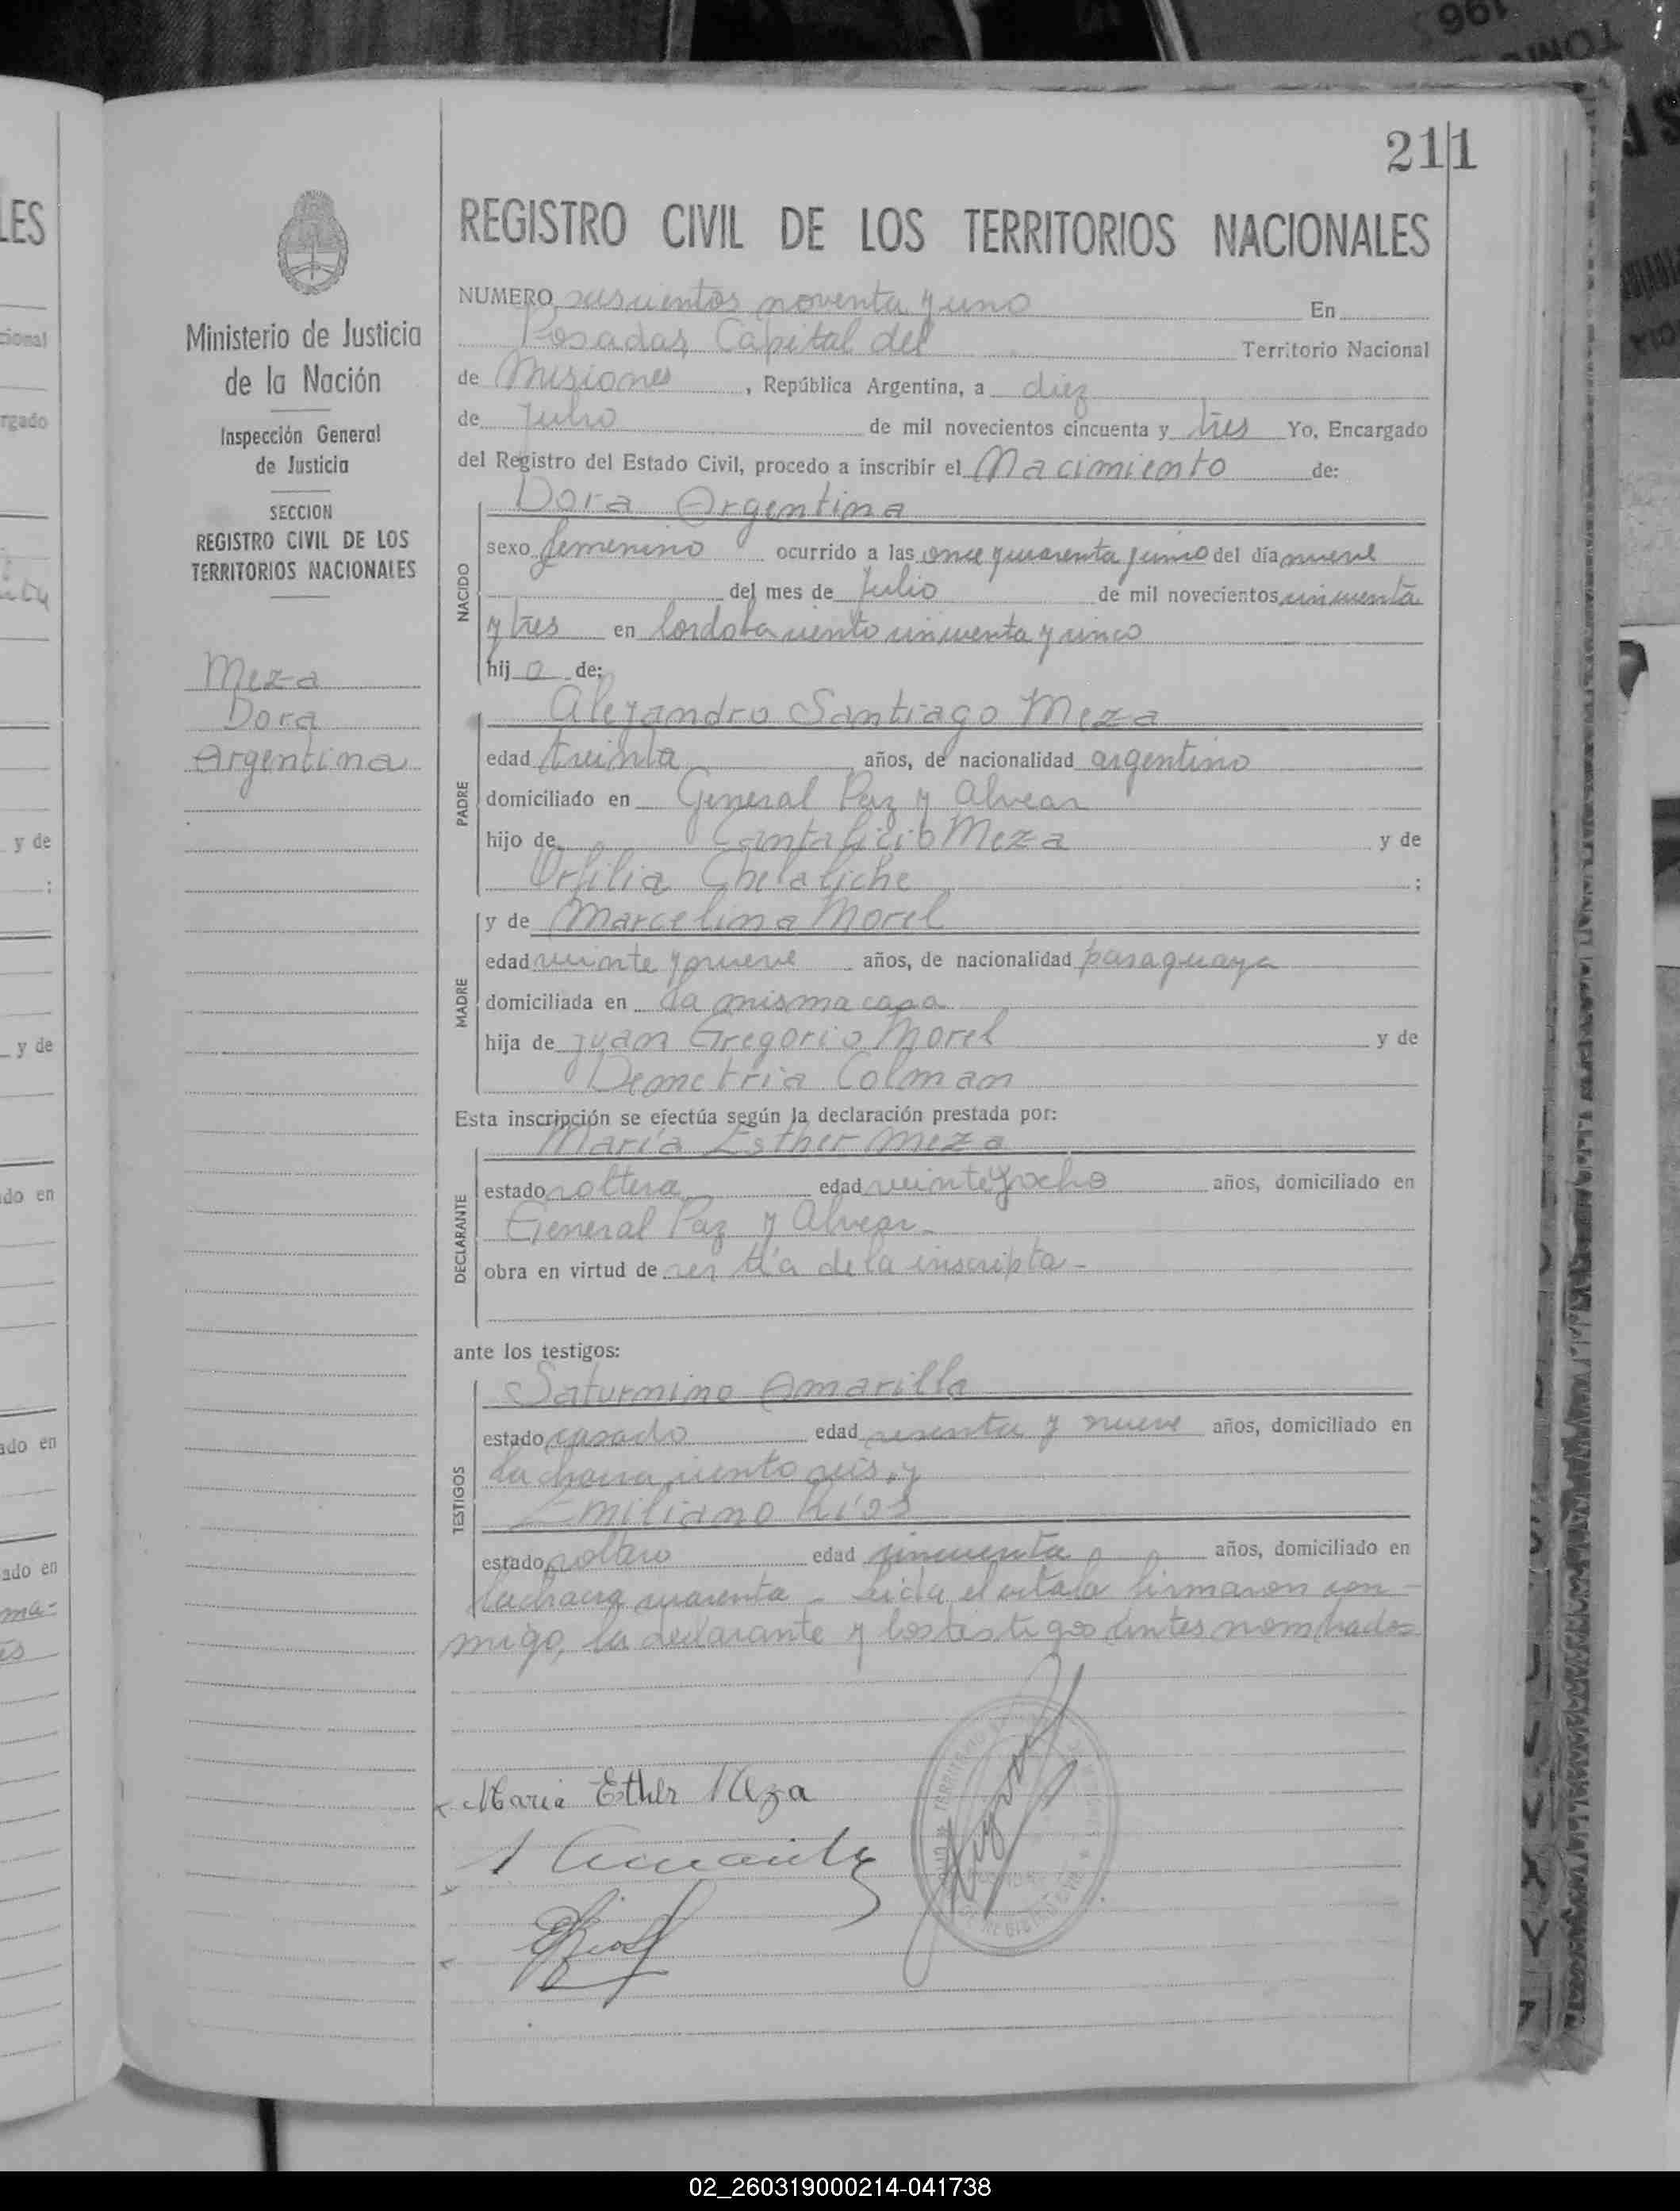 211
REGISTRO CIVIL DE LOS TERRITORIOS NACIONALES
Ministerio de Justicia
de la Nación
Inspección General
de Justicia
SECCION
REGISTRO CIVIL DE LOS
TERRITORIOS NACIONALES
Meza
Dora
Argentina
NUMERO seiscientos noventa y uno En
Posadas, Capital del Territorio Nacional
de Misiones, República Argentina, a diez
de Julio de mil novecientos cincuenta y tres Yo, Encargado
del Registro del Estado Civil, procedo a inscribir el Nacimiento de:
NACIDO
Dora Argentina
sexo femenino ocurrido a las once y cuarenta y cinco del día nueve
del mes de Julio de mil novecientos cincuenta
y tres en Cordoba ciento cincuenta y cinco
hij a de:
PADRE
Alejandro Santiago Meza
edad treinta años, de nacionalidad argentino
domiciliado en General Paz y Alvear
hijo de Cantalicio Meza y de
Orfilia Chelaliche ;
MADRE
y de Marcelina Morel
edad veinte y nueve años, de nacionalidad paraguaya
domiciliada en la misma casa
hija de Juan Gregorio Morel y de
Demetria Colman
Esta inscripción se efectúa según la declaración prestada por:
DECLARANTE
María Esther Meza
estado soltera edad veinte y ocho años, domiciliado en
General Paz y Alvear-
obra en virtud de ser tía de la inscripta-
ante los testigos:
TESTIGOS
Saturnino Amarilla
estado casado edad sesenta y nueve años, domiciliado en
la chacra ciento seis, y
Emiliano Ríos
estado soltero edad cincuenta años, domiciliado en
la chacra cuarenta - Leida el acta la firmaron con-
migo, la declarante y los testigos antes nombrados
Maria Esther Meza
02_260319000214-041738